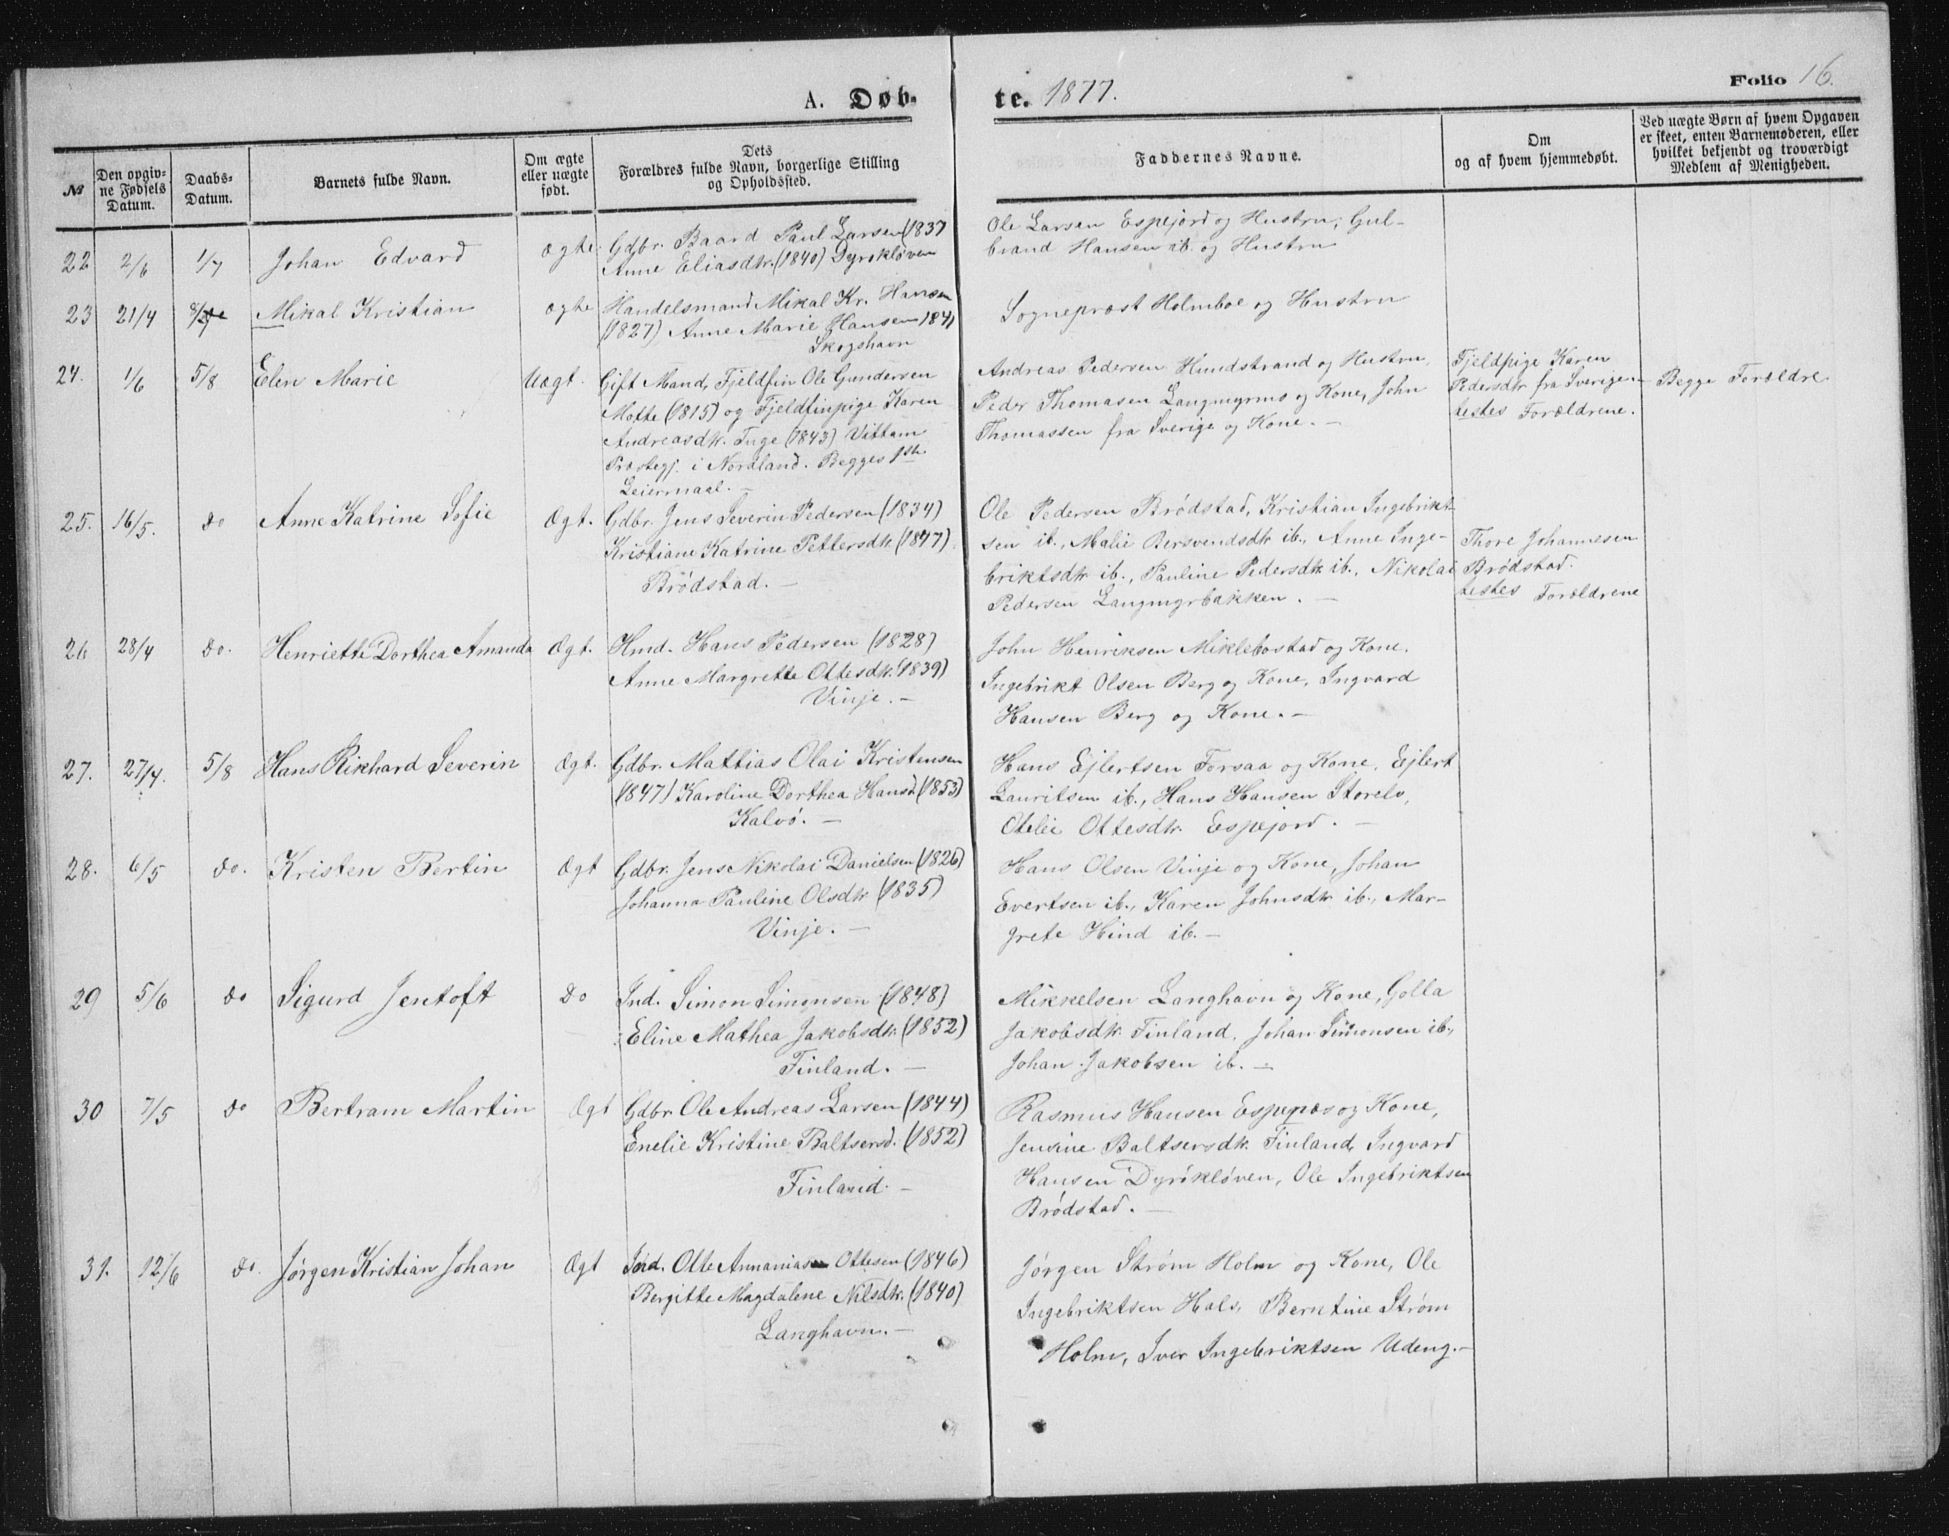 A. Døb-
te. 1877.
Folio 16.
№
Den opgiv-
ne Fødsels
Datum.
Daabs-
Datum.
Barnets fulde Navn.
Om ægte
eller uægte
født.
Dets
Forældres fulde Navn, borgerlige Stilling
og Opholdssted.
Faddernes Navne.
Om
og af hvem hjemmedøbt.
Ved uægte Børn af hvem Opgaven
er skeet, enten Barnemoderen, eller
hvilket bekjendt og troværdigt
Medlem af Menigheden.
22 2/6 1/7 Johan Edvard Ægte
Gdbr. Baard Paul Larsen (1837
Anne Eliasdtr. (1840) Dyrøkløven
Ole Larsen Espejord og Hustru, Gul-
brand Hansen ib. og Hustru
23 21/4 Mikal Kristian ægte
Handelsmand Mikal Kr. Hansen
(1827) Anne Marie Hansen 1841
Skogshavn
Sogneprest Holmboe og Hustru
24. 1/6 5/8 Elen Marie Uægt.
Gift Mand, Fjeldfin Ole Gundersen
Motte (1815) og Fjeldfinpige Karen
Andreasdtr. Tuge (1843) Vittam
Præstegj. i Nordland. Begges 1ste
Leiermaal. -
Andreas Pedersen Hundstrand og Hustru,
Peder Thomasen Langmyrmo og Kone, John
Thomassen fra Sverige og Kone. -
Fjeldpige Karen
Pedersdtr fra Sverige -
testes Forældrene.
Begge Forældre
25. 16/5. do Anne Katrine Sofie Ægt.
Gdbr. Jens Severin Pedersen (1834)
Kristiane Katrine Pettersdtr. (1847)
Brödstad. -
Ole Pedersen Brödstad, Kristian Ingebrikt-
sen ib., Malie Bersvendsdtr ib., Anne Inge-
briktsdtr ib., Pauline Pedersdtr ib., Nikolai
Pedersen Langmyrbakken. -
Thore Johannesen
Brödstad.
testes Forældrene
26 28/4 do. Henriette Dorthea Amanda Ægt.
Hmd. Hans Pedersen (1828)
Anne Margrette Ottesdtr. (1839)
Vinje. -
John Henriksen Miklebostad og Kone.
Ingebrikt Olsen Berg og Kone, Ingvard
Hansen Berg og Kone. -
27. 27/4. 5/8 Hans Rikhard Severin Ægt.
Gdbr. Mattias Olai Kristensen
(1847) Karoline Dorthea Hansd (1853)
Kalvö. -
Hans Ejlertsen Forsaa og Kone, Ejlert
Lauritsen ib., Hans Hansen Storelv,
Otelie Ottesdtr. Espejord. -
28. 6/5 do. Kristen Bertin Ægt
Gdbr. Jens Nikolai Danielsen (1826)
Johanna Pauline Olsdtr (1835)
Vinje. -
Hans Olsen Vinje og Kone, Johan
Evertsen ib., Karen Johnsdtr ib., Mar-
grete Hind ib. -
29 5/6 do Sigurd Jentoft Do
Ind. Simon Simonsen (1848)
Eline Mathea Jakobsdtr. (1852)
Finland. -
Mikkelsen Langhavn og Kone, Golla
Jakobsdtr. Finland, Johan Simonsen ib.,
Johan Jakobsen ib. -
30 7/5 do Bertram Martin Ægt
Gdbr. Ole Andreas Larsen (1844)
Enelie Kristine Baltsersd. (1852)
Finland. -
Rasmus Hansen Espenæs og Kone,
Jensine Baltsersdtr. Finland, Ingvard
Hansen Dyrökløven, Ole Ingebriktsen
Brödstad. -
31. 12/6 do. Jørgen Kristian Johan Ægt
Ind. Otte Annanias Ottesen (1846)
Bergitte Magdalene Nilsdtr. (1840)
Langhavn. -
Jørgen Strøm Holm og Kone, Ole
Ingebriktsen Hals, Berntine Strøm
Holm, Iver Ingebriktsen Udeng. -